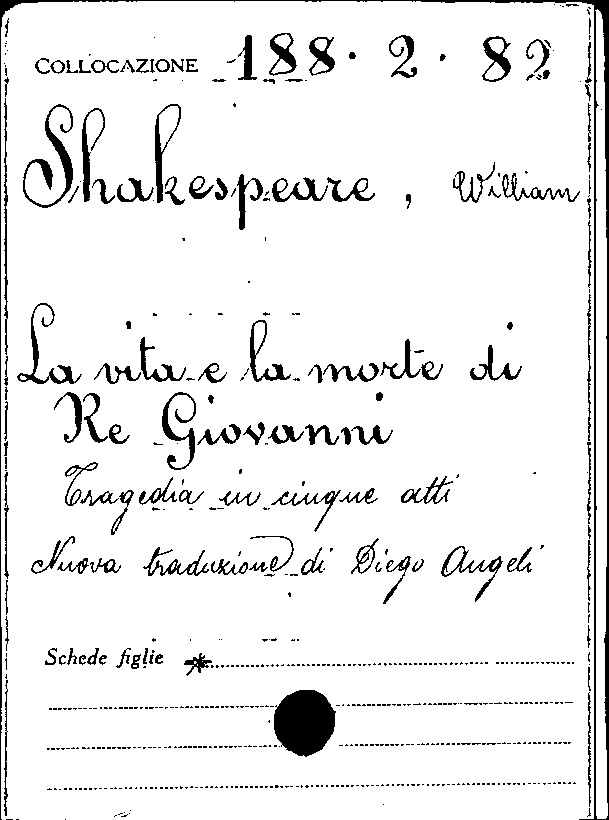 COLLOCAZIONE 188. 2. 82
Shakespeare, William
La vita e la morte di
Re Giovanni
Tragedia in cinque atti
Nuova traduzione di Diego Angeli
Schede figlie *